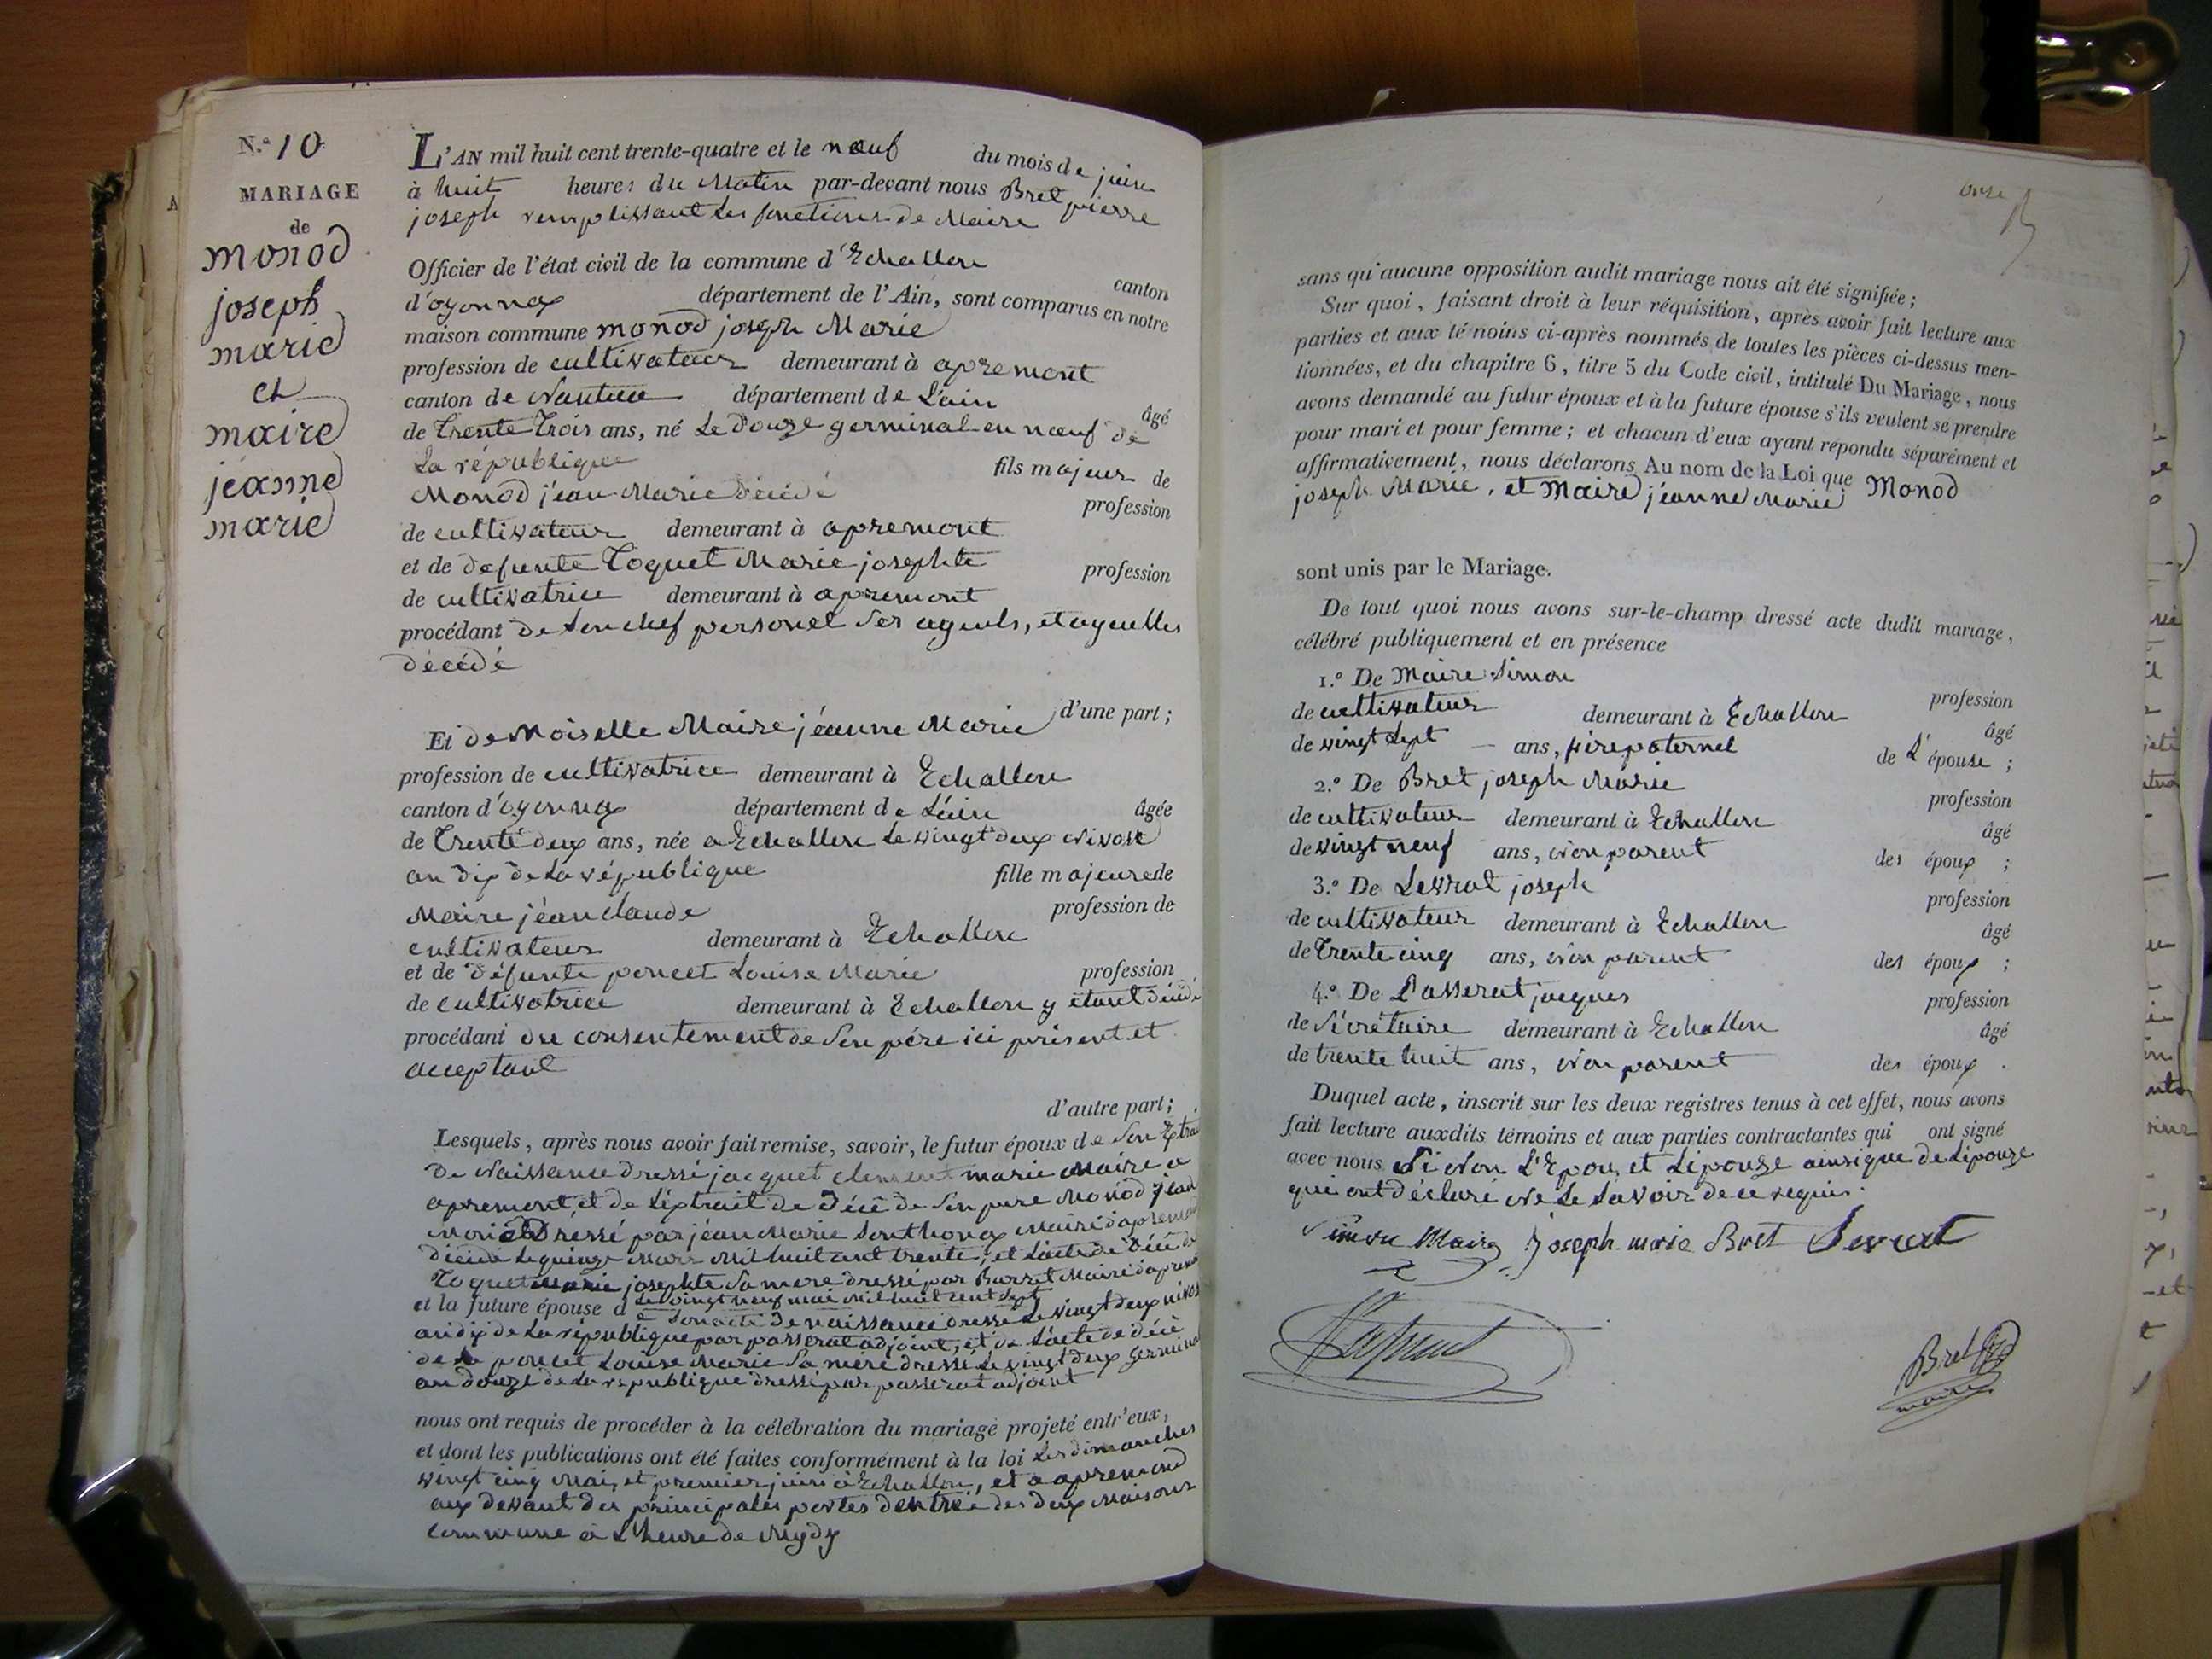 N.° 10
MARIAGE
de
monod
joseph
marie
et
maire
jeanne
marie
L'AN mil huit cent trente-quatre et le nœuf du mois de juin
à huit heures du Matin par-devant nous Bret pierre
joseph remplissant les fonctions de Maire
Officier de l'état civil de la commune d'Echallon canton
d'oyonnax département de l'Ain, sont comparus en notre
maison commune monod joseph Marie
profession de cultivateur demeurant à apremont
canton de Nantua département de L'ain âgé
de trente trois ans, né Le douze germinal an nœuf de
La république fils majeur de
Monod jean Marie décédé profession
de cultivateur demeurant à apremont
et de defunte Toquet Marie josephte profession
de cultivatrice demeurant à apremont
procédant de son chef personel Ses ayeuls, et ayeulles
décédé
d'une part ;
Et demoiselle Maire jéanne Marie
profession de cultivatrice demeurant à Echallon
canton d'oyonnax département de L'ain âgée
de trente deux ans, née a Echallon Le vingt deux nivose
an dix de La république fille majeure de
Maire jéan claude profession de
cultivateur demeurant à Echallon
et de défunte poncet Louise Marie profession
de cultivatrice demeurant à Echallon y étant décédé
procédant du consentement de Son pére ici présent et
acceptant
d'autre part ;
Lesquels, après nous avoir fait remise, savoir, le futur époux de Son Extrait
De Naissance dressé jacquet marie Maire a
apremont, et de L'extrait de Décé de Son pere Monod jean
Marie Dressé par jéan Marie Sonthonax Maire d'apremont
décédé Le quinze Mars Mil huit cent trente, et L'acte de Décé de
Toquet Marie josephte Sa mere dressé par Burret Maire d'apremont
Le vingt neuf mai Mil huit cent Sept
et la future épouse de Son acte De naissance dressé Le vingt deux nivose
an dix de La république par passerat adjoint, et de L'acte de décé
de poncet Louise Marie Sa mére dressé Le vingt deux Germinal
an douze de La republique dressé par passerat adjoint
nous ont requis de procéder à la célébration du mariage projeté entr'eux,
et dont les publications ont été faites conformément à la loi Les dimanches
vingt cinq Mai, et premier juin à Echallon, et a apremond
aux devant des principales portes dentrée des deux Maisons
commune à L'heure de Mydy
onze
sans qu'aucune opposition audit mariage nous ait été signifiée ;
Sur quoi, faisant droit à leur réquisition, après avoir fait lecture aux
parties et aux témoins ci-après nommés de toutes les pièces ci-dessus men-
tionnées, et du chapitre 6, titre 5 du Code civil, intitulé Du Mariage, nous
avons demandé au futur époux et à la future épouse s'ils veulent se prendre
pour mari et pour femme ; et chacun d'eux ayant répondu séparément et
affirmativement, nous déclarons Au nom de la Loi que Monod
joseph Marie, et Maire jéanne Marie
sont unis par le Mariage.
De tout quoi nous avons sur-le-champ dressé acte dudit mariage,
célébré publiquement et en présence
1.° De Maire Simon profession
de cultivateur demeurant à Echallon âgé
de vingt Sept ans, frère paternel de L'épouse ;
2.° De Bret joseph Marie profession
de cultivateur demeurant à Echallon âgé
de vingt neuf ans, non parent des époux ;
3.° De Levrat joseph profession
de cultivateur demeurant à Echallon âgé
de Trente cinq ans, non parent des époux ;
4.° De Passerat jacques profession
de Sécrétaire demeurant à Echallon âgé
de trente huit ans, non parent des époux .
Duquel acte, inscrit sur les deux registres tenus à cet effet, nous avons
fait lecture auxdits témoins et aux parties contractantes qui ont signé
avec nous Si non L'Epou, et L'épouze ainsi que de L'épouze
qui ont déclaré ne Le Savoir de ce requis.
Simon Maire Joseph marie Bret Levrat
Passerat
Bret
maire